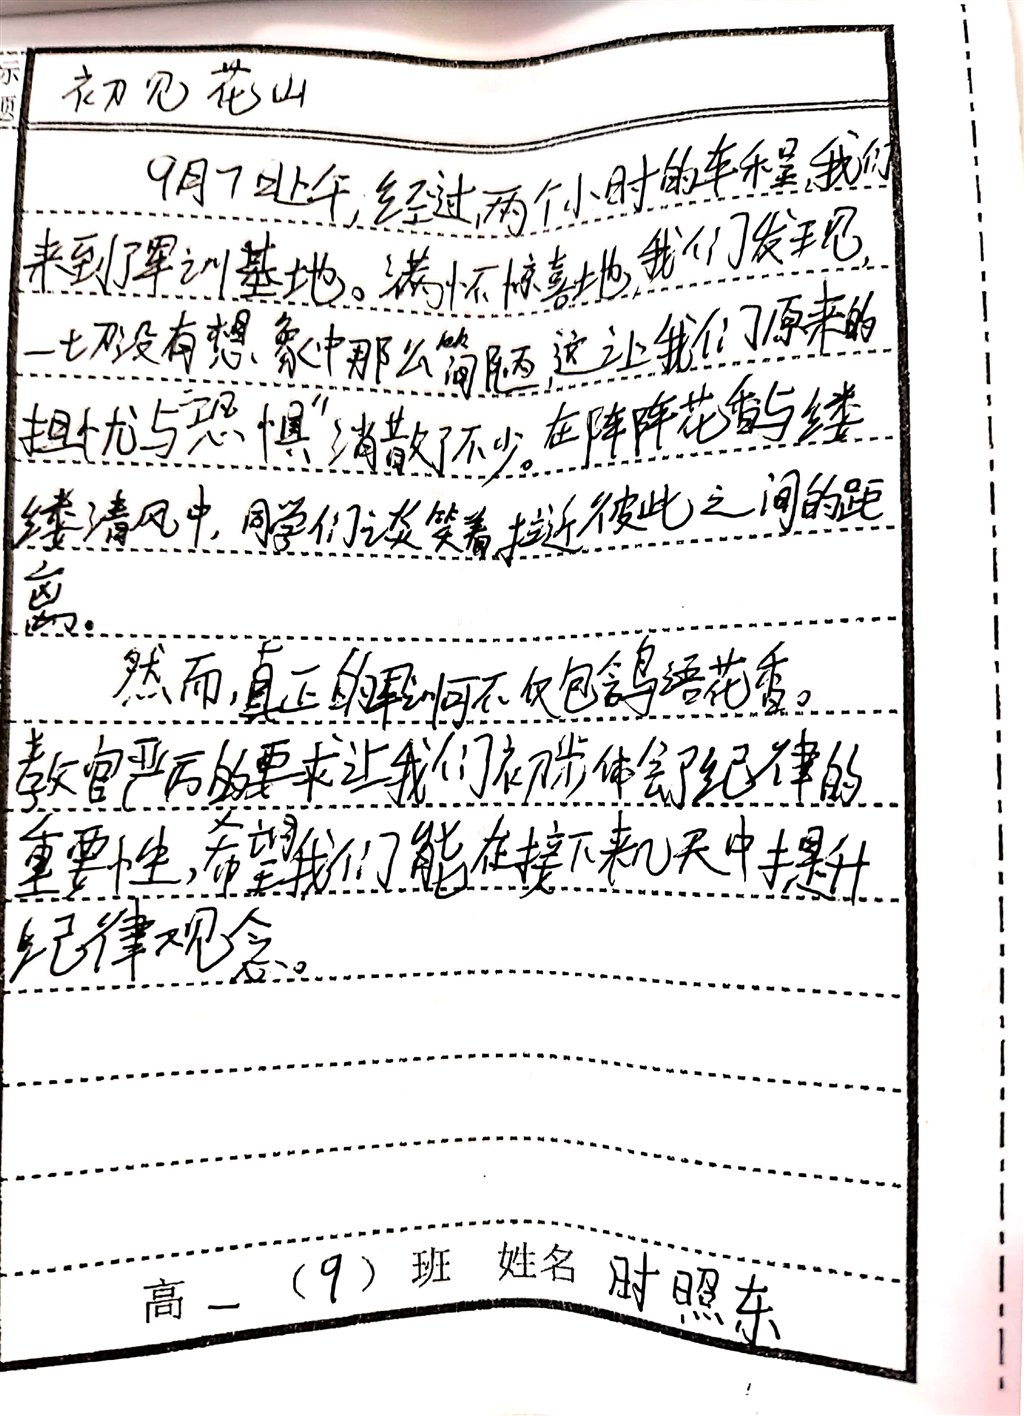 标题
初见花山
9月7日上午,经过两个小时的车程,我们
来到了军训基地。满怀惊喜地,我们发现,
一切没有想象中那么简陋,这让我们原来的
担忧与"恐惧"消散了不少。在阵阵花香与缕
缕清风中,同学们谈笑着,拉近彼此之间的距
离。
然而,真正的军训可不仅包鸟语花香。
教官严厉的要求让我们初步体会了纪律的
重要性,希望我们能在接下来几天中提升
纪律观念。
高一(9)班 姓名 时照东